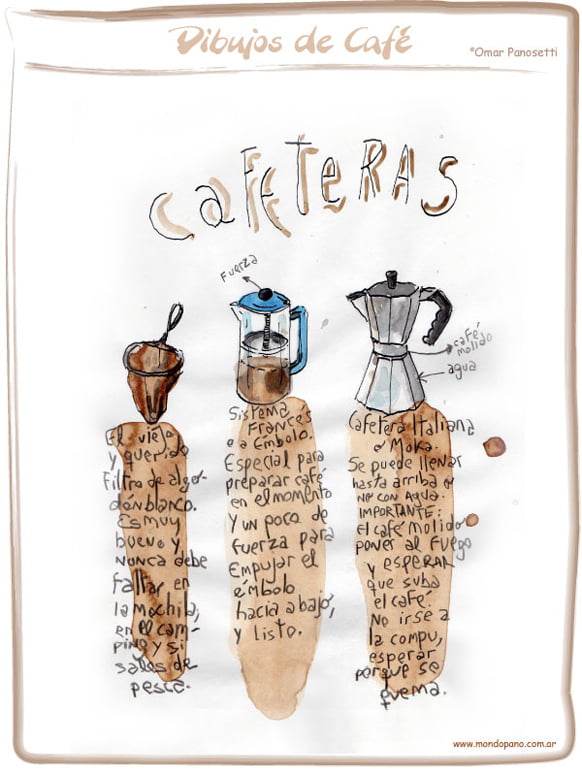 Dibujos de Café
*Omar Panosetti
CAFETERAS
Fuerza
café
molido
agua
El viejo
y querido
Filtro de algo-
dón blanco.
Es muy
bueno y
nunca debe
faltar en
la mochila,
en el cam-
ping y si
sales de
pesca.
Sistema
Francés
o a Embolo.
Especial para
preparar café
en el momento
y un poco de
fuerza para
Empujar el
émbolo
hacia abajo,
y listo.
Cafetera Italiana
o Moka.
Se puede llenar
hasta arriba o
no con agua.
IMPORTANTE:
el café molido
poner al fuego
y esperar
que suba
el café.
No irse a
la compu,
esperar
porque se
quema.
www.mondopano.com.ar